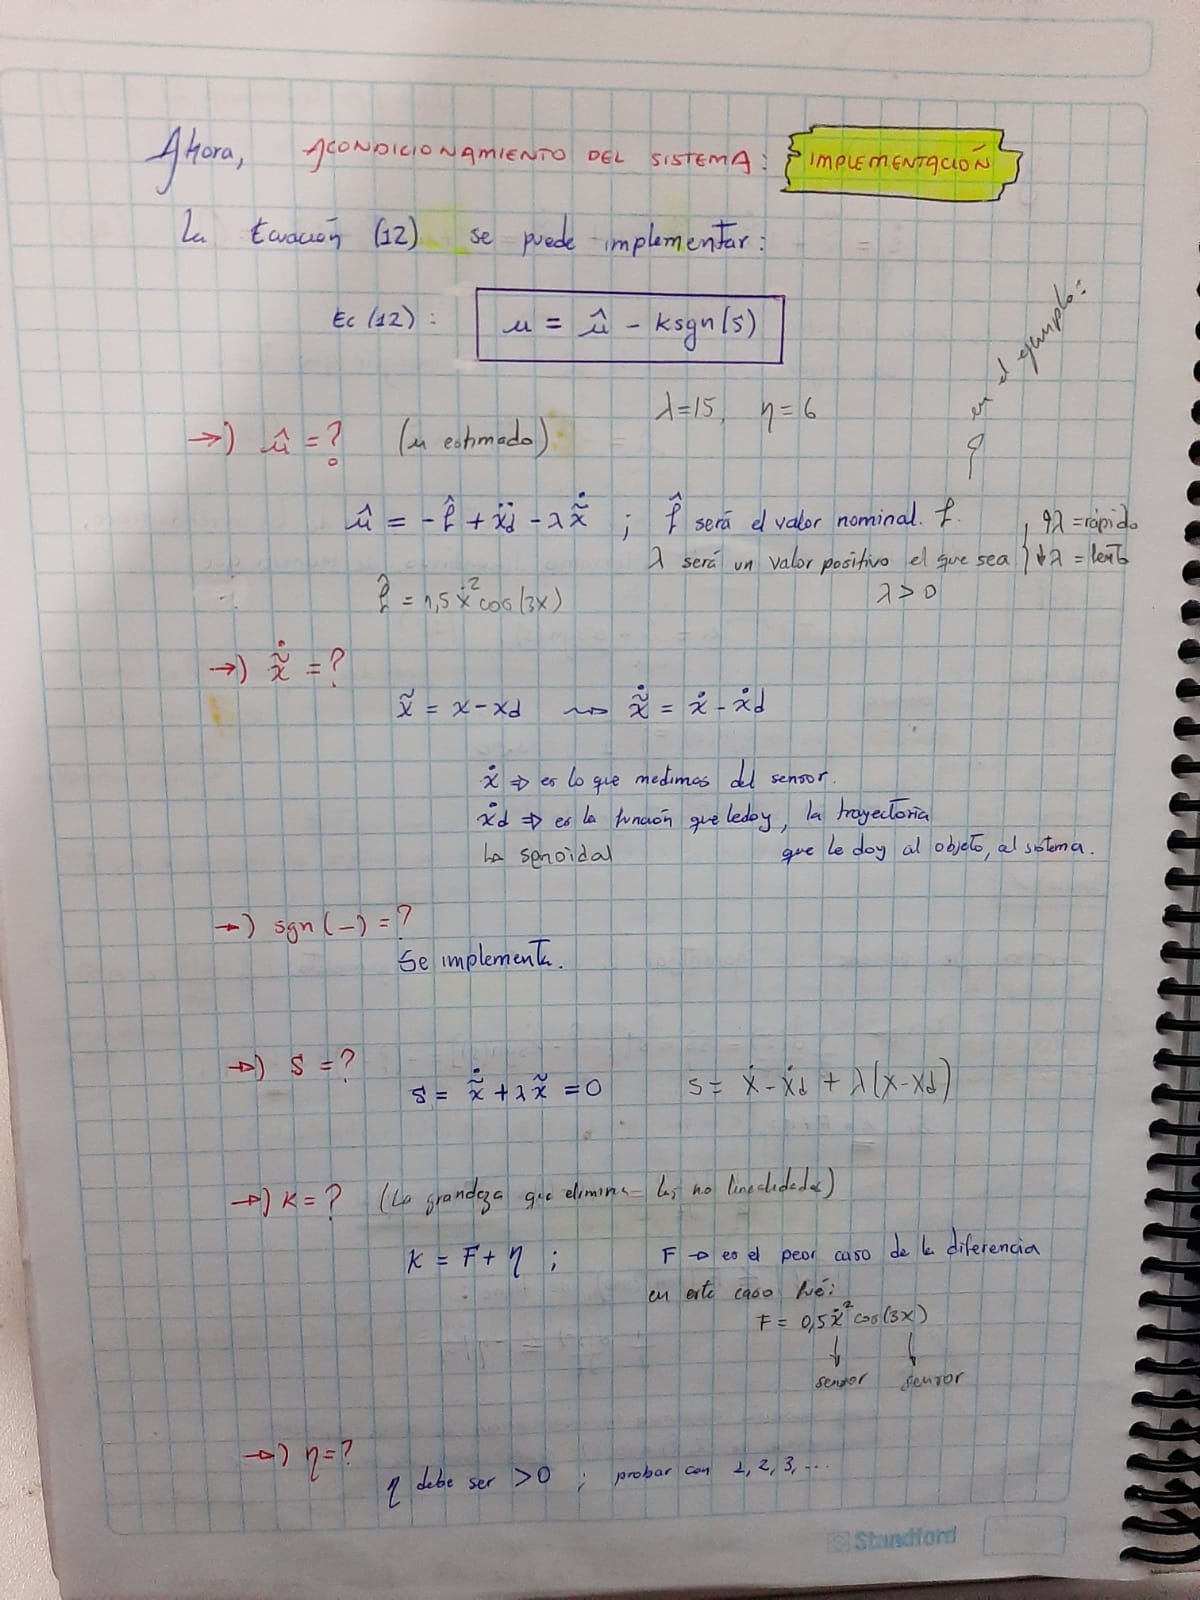 Ahora, ACONDICIONAMIENTO DEL SISTEMA: IMPLEMENTACIÓN
La Ecuación (12) se puede implementar:
Ec (12): u = û - ksgn(s)
en el ejemplo:
λ=15, η=6
→) û = ? (u estimado)
û = -f̂ + ẍd - λ x̃̇ ; f̂ será el valor nominal. f. , ↑λ = rápido
λ será un valor positivo el que sea ↓λ = lento
f̂ = 1,5 ẋ² cos(3x) λ > 0
→) x̃̇ = ?
x̃ = x - xd ⇝ x̃̇ = ẋ - ẋd
ẋ ⇒ es lo que medimos del sensor.
ẋd ⇒ es la función que le doy, la trayectoria
La senoidal que le doy al objeto, al sistema.
→) sgn(-) = ?
Se implementa.
→) S = ?
s = x̃̇ + λ x̃ = 0 s = ẋ - ẋd + λ(x - xd)
→) K = ? (La grandeza que elimina las no linealidades)
K = F + η ; F → es el peor caso de la diferencia
en este caso fué:
F = 0,5 ẋ² cos(3x)
↓ ↓
sensor sensor
→) η = ?
η debe ser > 0 ; probar con 1, 2, 3, ...
Standford